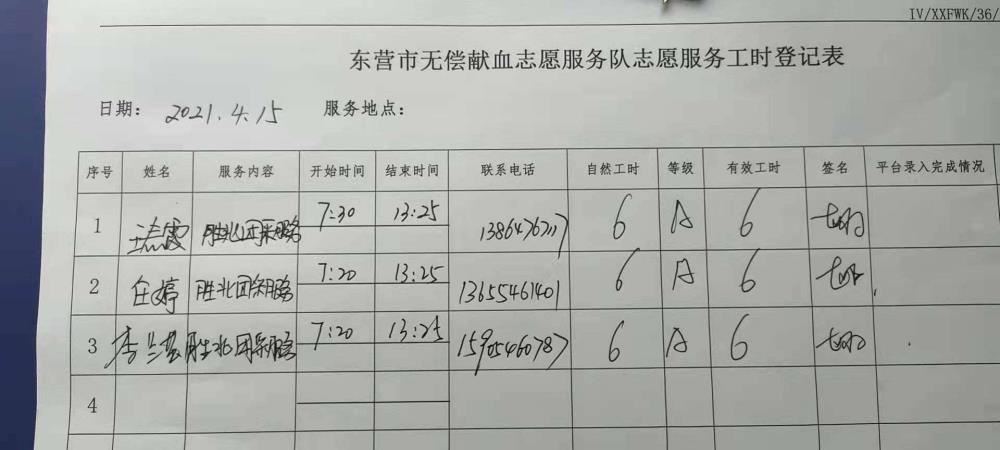 IV/XXFWK/36/
东营市无偿献血志愿服务队志愿服务工时登记表
日期： 2021.4.15 服务地点：
序号 姓名 服务内容 开始时间 结束时间 联系电话 自然工时 等级 有效工时 签名 平台录入完成情况
1 胜北团采服务 7:30 13:25 13864767117 6 A 6
2 任婷 胜北团采服务 7:20 13:25 13655461401 6 A 6
3 李兰 胜北团采服务 7:20 13:25 15905460787 6 A 6
4